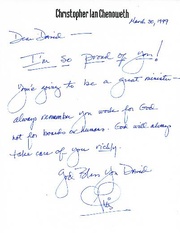 Christopher Ian Chenoweth
March 30, 1999
Dear David —
I'm So Proud of you!
You're going to be a great minister —
always remember you work for God-
not for boards or humans. God will always
take care of you richly.
God Bless You David
Chris